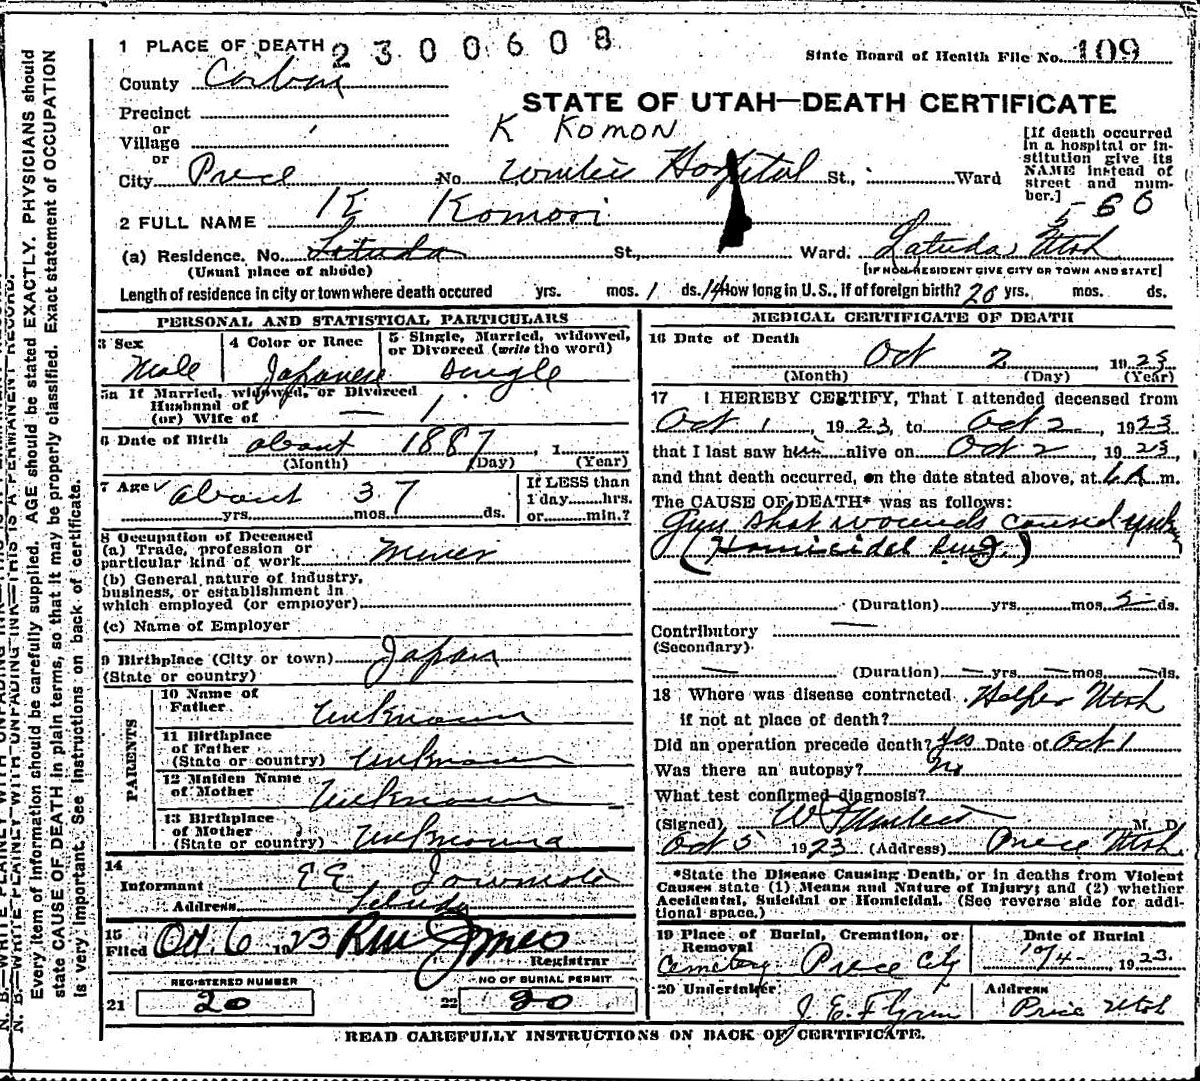 1 PLACE OF DEATH 2300608
State Board of Health File No. 109
County Carbon
STATE OF UTAH—DEATH CERTIFICATE
Precinct
or
Village
or
K KOMON
[If death occurred in a hospital or institution give its NAME instead of street and number.]
City Price No Hospital St., Ward
2 FULL NAME K Komori
5-60
(a) Residence. No. Latuda St., Ward. Latuda Utah
(Usual place of abode)
[IF NON-RESIDENT GIVE CITY OR TOWN AND STATE]
Length of residence in city or town where death occured yrs. mos. 1 ds. 14 How long in U.S., if of foreign birth? 20 yrs. mos. ds.
PERSONAL AND STATISTICAL PARTICULARS
3 Sex
Male
4 Color or Race
Japanese
5 Single, Married, widowed, or Divorced (write the word)
Single
5a If Married, widowed, or Divorced
Husband of
(or) Wife of
6 Date of Birth about 1887, 1
(Month) (Day) (Year)
7 Age about 37
yrs. mos. ds.
If LESS than
1 day hrs.
or min.?
8 Occupation of Deceased
(a) Trade, profession or
particular kind of work Miner
(b) General nature of Industry,
business, or establishment in
which employed (or employer)
(c) Name of Employer
9 Birthplace (City or town) Japan
(State or country)
PARENTS
10 Name of
Father unknown
11 Birthplace
of Father
(State or country) unknown
12 Maiden Name
of Mother unknown
13 Birthplace
of Mother
(State or country) unknown
14
Informant
Address Latuda
15
Filed Oct. 6 1923 Jones
Registrar
REGISTERED NUMBER
21 20
NO OF BURIAL PERMIT
22 20
MEDICAL CERTIFICATE OF DEATH
16 Date of Death
Oct 2 1923
(Month) (Day) (Year)
17 I HEREBY CERTIFY, That I attended deceased from
Oct 1, 1923, to Oct 2, 1923
that I last saw him alive on Oct 2, 1923,
and that death occurred, on the date stated above, at 6 A m.
The CAUSE OF DEATH* was as follows:
Gun shot wounds caused
(Homicidal
(Duration) yrs. mos. 2 ds.
Contributory
(Secondary)
(Duration) — yrs. — mos. — ds.
18 Where was disease contracted Helper Utah
if not at place of death?
Did an operation precede death? Yes Date of Oct 1
Was there an autopsy? No
What test confirmed diagnosis?
(Signed) M. D.
Oct 5 1923 (Address) Price Utah
*State the Disease Causing Death, or in deaths from Violent
Causes state (1) Means and Nature of Injury; and (2) whether
Accidental, Suicidal or Homicidal. (See reverse side for additional space.)
19 Place of Burial, Cremation, or
Removal
Cemetery Price City
Date of Burial
10/4- 1923.
20 Undertaker
J. E. Flynn
Address
Price Utah
READ CAREFULLY INSTRUCTIONS ON BACK OF CERTIFICATE.
N. B.—WRITE PLAINLY WITH UNFADING INK—THIS IS A PERMANENT RECORD.
Every item of information should be carefully supplied. AGE should be stated EXACTLY. PHYSICIANS should
state CAUSE OF DEATH in plain terms, so that it may be properly classified. Exact statement of OCCUPATION
is very important. See instructions on back of certificate.